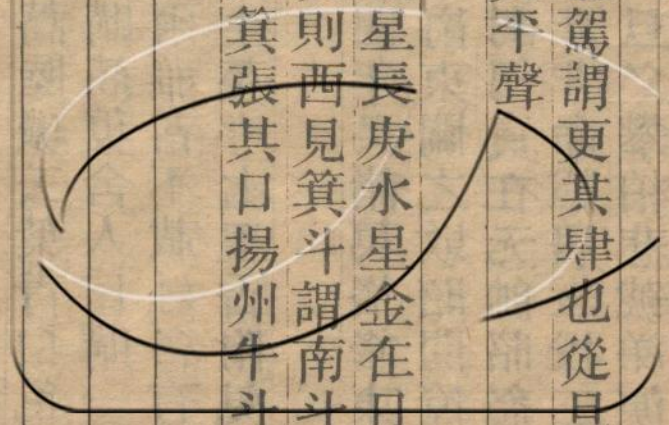 駕謂更其肆也從日
平聲
星長庚水星金在日
則西見箕斗謂南斗
箕張其口揚州牛斗